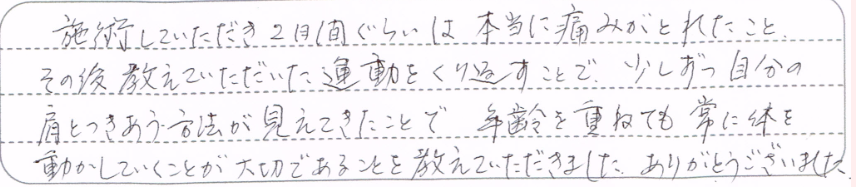 施術していただき2日間ぐらいは本当に痛みがとれたこと、
その後教えていただいた運動をくり返すことで、少しずつ自分の
肩とつきあう方法が見えてきたことで年齢を重ねても常に体を
動かしていくことが大切であることを教えていただきました。ありがとうございました